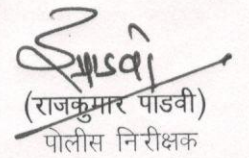 (राजकुमार पाडवी)
पोलीस निरीक्षक